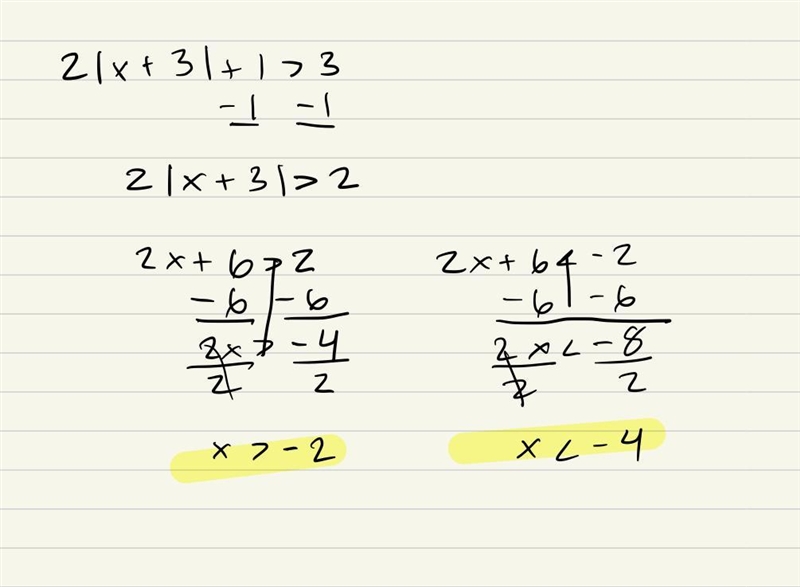 2|x + 3| + 1 > 3
-1 -1
2|x + 3| > 2
2x + 6 > 2
-6 -6
2x > -4
2 2
x > -2
2x + 6 < -2
-6 -6
2x < -8
2 2
x < -4